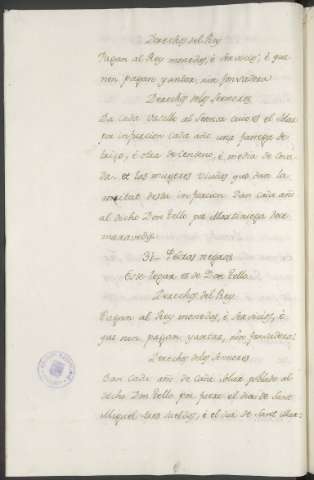 Derechos del Rey
Pagan al Rey monedas, è servicios, è que
non pagan yantar, nin fonsadera
Derechos delos Sennores
Da cada Vasallo al Sennor cuio es el solar
por infurcion cada año una fanega de
trigo, è otra de Centeno, è media de Ceva-
da et las mugeres viudas que dan la
meitat desta infurcion Dan cada año
al dicho Don Tello por Martiniega doce
maravedis.
31 Pedros negros
Este Logar es de Don Tello
Derechos del Rey
Pagan al Rey monedas, è servicios, è
que non pagan yantar, nin fonsadera:
Derechos delos Sennores
Dan cada año de cada solar poblado al
dicho Don Tello por fuero el dia de Sant
Miguel tres sueldos, è el dia de Sant Mar-